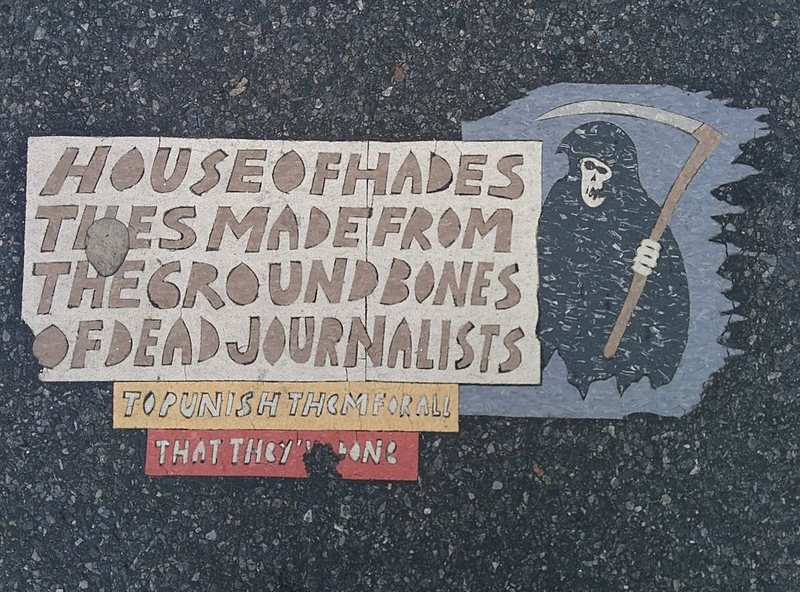 HOUSE OF HADES
MADE FROM
THE GROUND BONES
OF DEAD JOURNALISTS
TO PUNISH THEM FOR ALL
THAT DONE